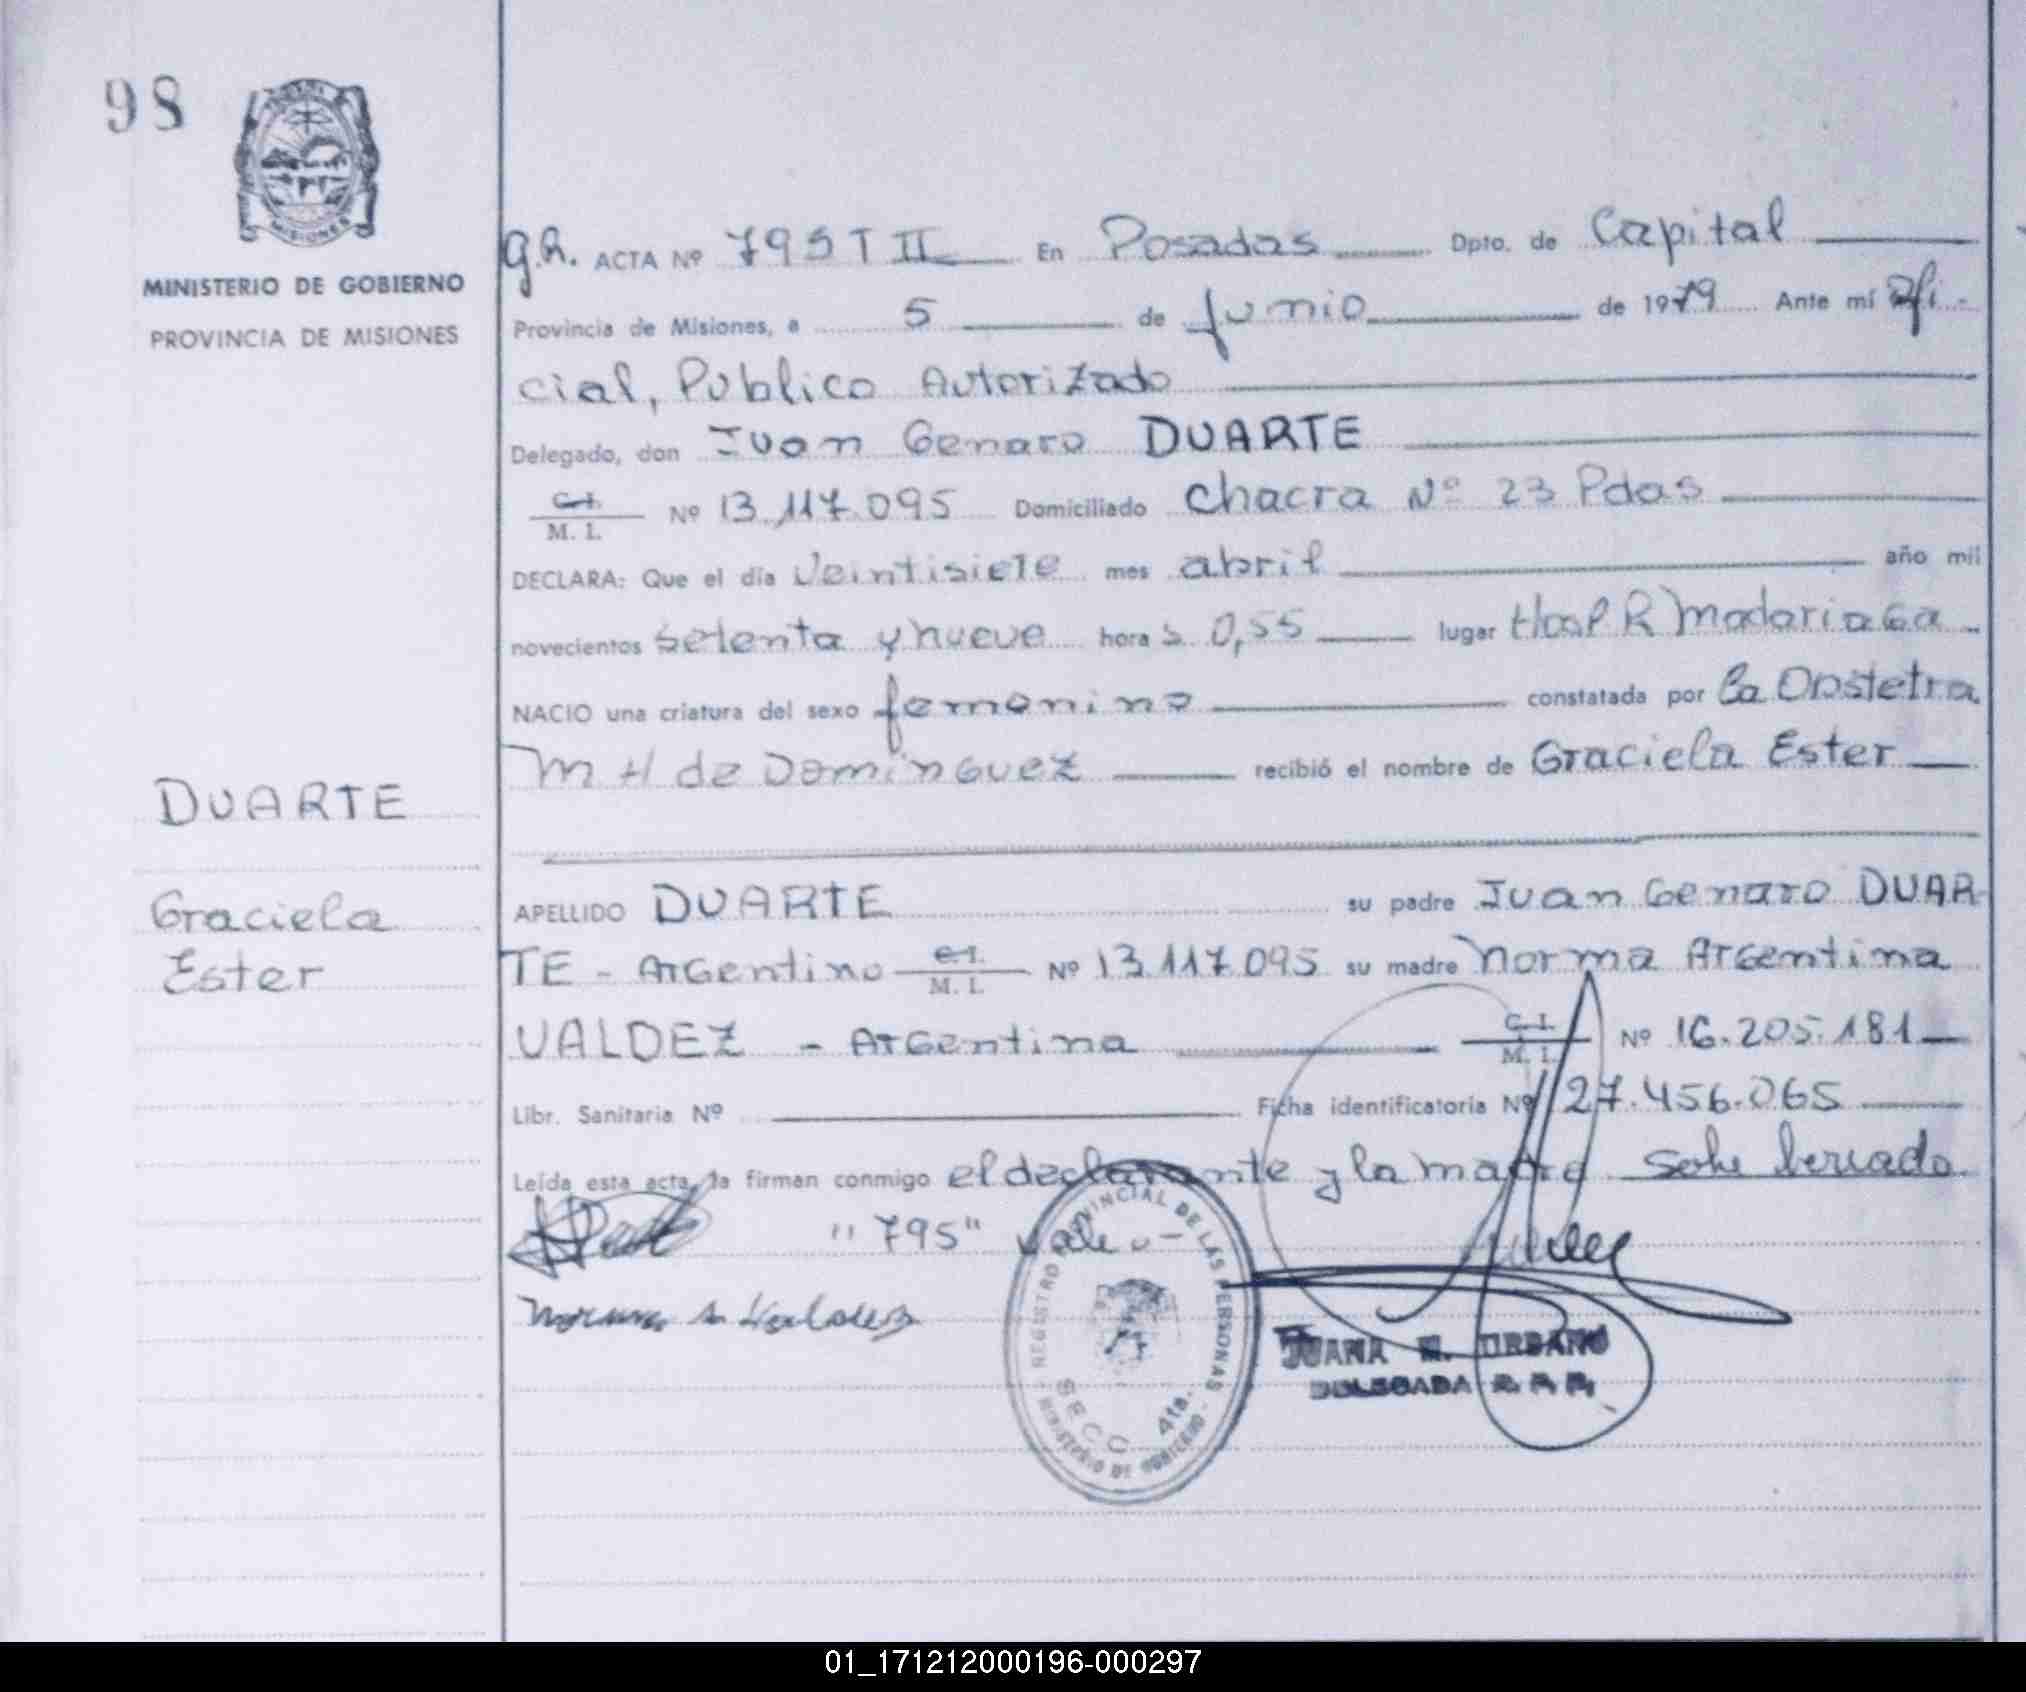 98
MISIONES
MINISTERIO DE GOBIERNO
PROVINCIA DE MISIONES
DUARTE
Graciela
Ester
g.R. ACTA Nº 795 T II En Posadas Dpto. de Capital
Provincia de Misiones, a 5 de Junio de 1979 Ante mí Ofi-
cial, Publico Autorizado
Delegado, don Juan Genaro DUARTE
C.I. / M. I. Nº 13.117.095 Domiciliado Chacra Nº 23 Pdas
DECLARA: Que el día Veintisiete mes abril año mil
novecientos Setenta y nueve hora s 0,55 lugar Hosp R Madariaga
NACIO una criatura del sexo femenino constatada por la Obstetra
M H de Dominguez recibió el nombre de Graciela Ester
APELLIDO DUARTE su padre Juan Genaro DUAR
TE - Argentino C.I. / M. I. Nº 13.117.095 su madre Norma Argentina
VALDEZ - Argentina C.I. / M. I. Nº 16.205.181
Libr. Sanitaria Nº Ficha identificatoria Nº 27.456.065
Leída esta acta, la firman conmigo el declarante y la madre Sobre
"795" vale
Norma A Valdez
REGISTRO PROVINCIAL DE LAS PERSONAS
SECC 4ta.
MINISTERIO DE GOBIERNO
JUANA E. URBANO
DELEGADA R. P. P.
01_171212000196-000297